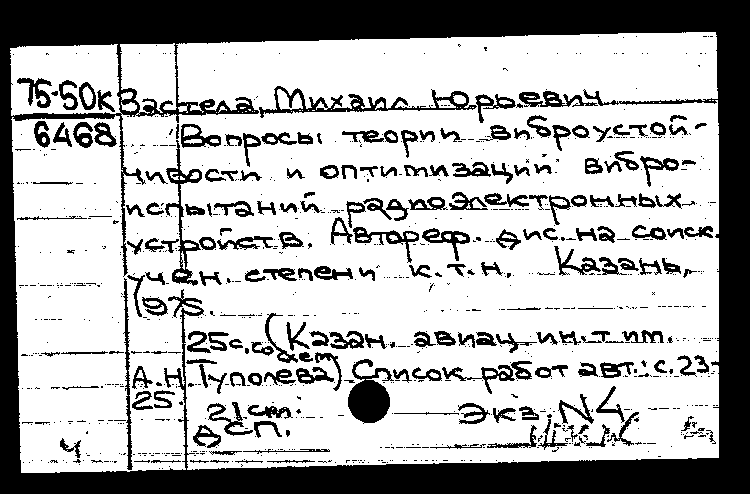 75-50к Вастела, Михаил Юрьевич
6468 Вопросы теории виброустой-
чивости и оптимизации вибро-
испытаний радиоэлектронных
устройств. Автореф. дис. на соиск.
учен. степени к.т.н. Казань,
1975.
25с. со схем (Казан. авиац ин.т им.
А.Н. Туполева) Список работ авт.: с. 23-
25. 21 см. Экз. N4
ДСП.
Ч